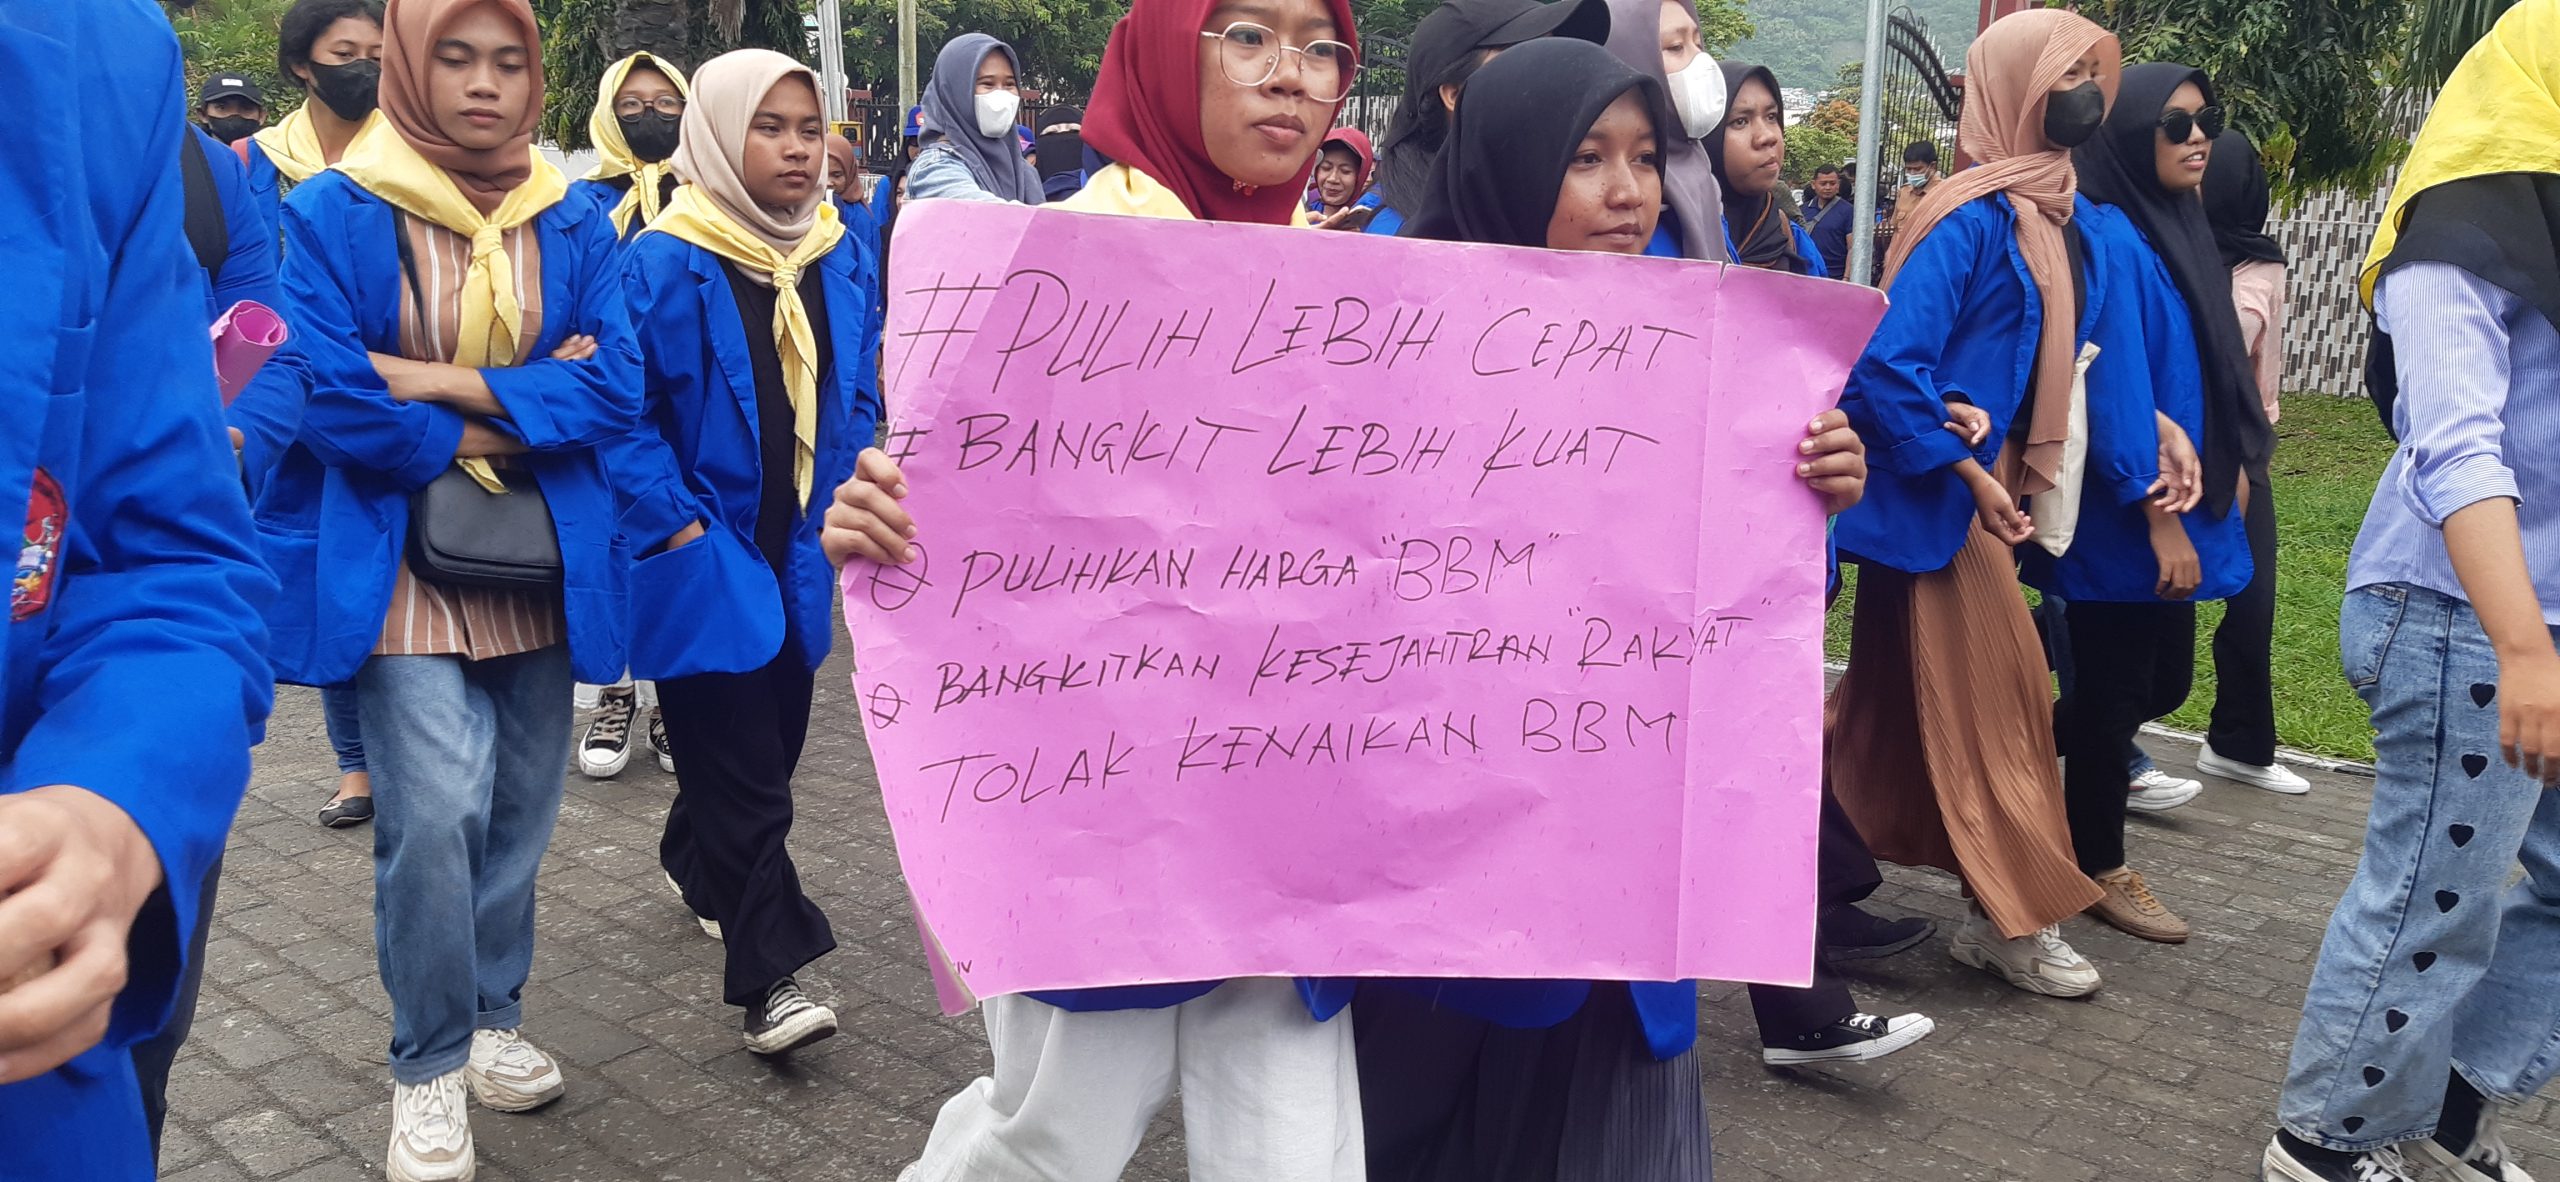 #PULIH LEBIH CEPAT
#BANGKIT LEBIH KUAT
PULIHKAN HARGA "BBM"
BANGKITKAN KESEJAHTRAN "RAKYAT"
TOLAK KENAIKAN BBM